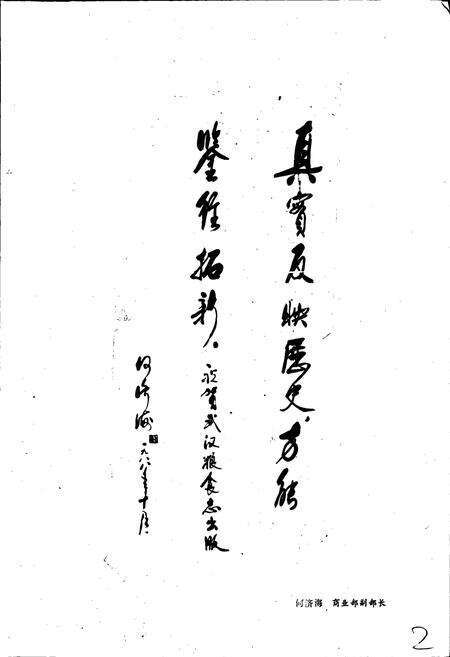 真實反映歷史,方能
鉴往拓新。祝贺武汉粮食志出版
何济海
一九八八年十月
何济海 商业部副部长
2